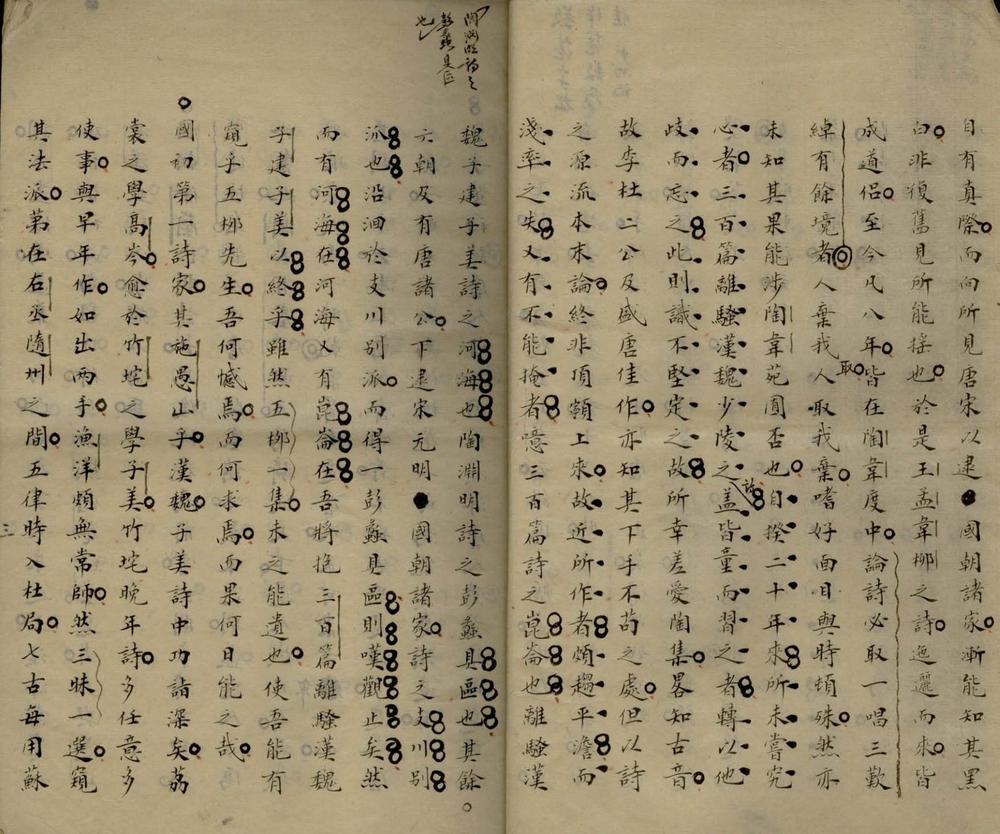 自有真際而向所見唐宋以逮國朝諸家漸能知其黑
白非復舊見所能搖也於是王孟韋柳之詩迤邐而來皆
成道侶至今凡八年皆在陶韋度中論詩必取一唱三歎
綽有餘境者人棄我取人取我棄嗜好面目與時頓殊然亦
未知其果能涉陶韋苑囿否也自揆二十年來所未嘗究
心者三百篇離騷漢魏少陵之詩蓋皆童而習之者轉以他
歧而忘之此則識不堅定之故所幸差愛陶集畧知古音
故李杜二公及盛唐佳作亦知其下手不苟之處但以詩
之源流本末論終非項領上來故近所作者頗趨平澹而
淺率之失又有不能掩者噫三百篇詩之崑崙也離騷漢
陶淵明詩之
彭蠡具區
也
魏子建子美詩之河海也陶淵明詩之彭蠡具區也其餘
六朝及有唐諸公下逮宋元明國朝諸家詩之支川別
派也沿洄於支川別派而得一彭蠡具區則嘆觀止矣然
而有河海在河海又有崑崙在吾將抱三百篇離騷漢魏
子建子美以終乎雖然五柳一集未之能遺也使吾能有
窺乎五柳先生吾何憾焉而何求焉而果何日能之哉
國初第一詩家其施愚山乎漢魏子美詩中功詣深矣荔
裳之學高岑愈於竹垞之學子美竹垞晚年詩多任意多
使事與早年作如出兩手漁洋頗無常師然三昧一選窺
其法派第在右丞隨州之間五律時入杜局七古每用蘇
三